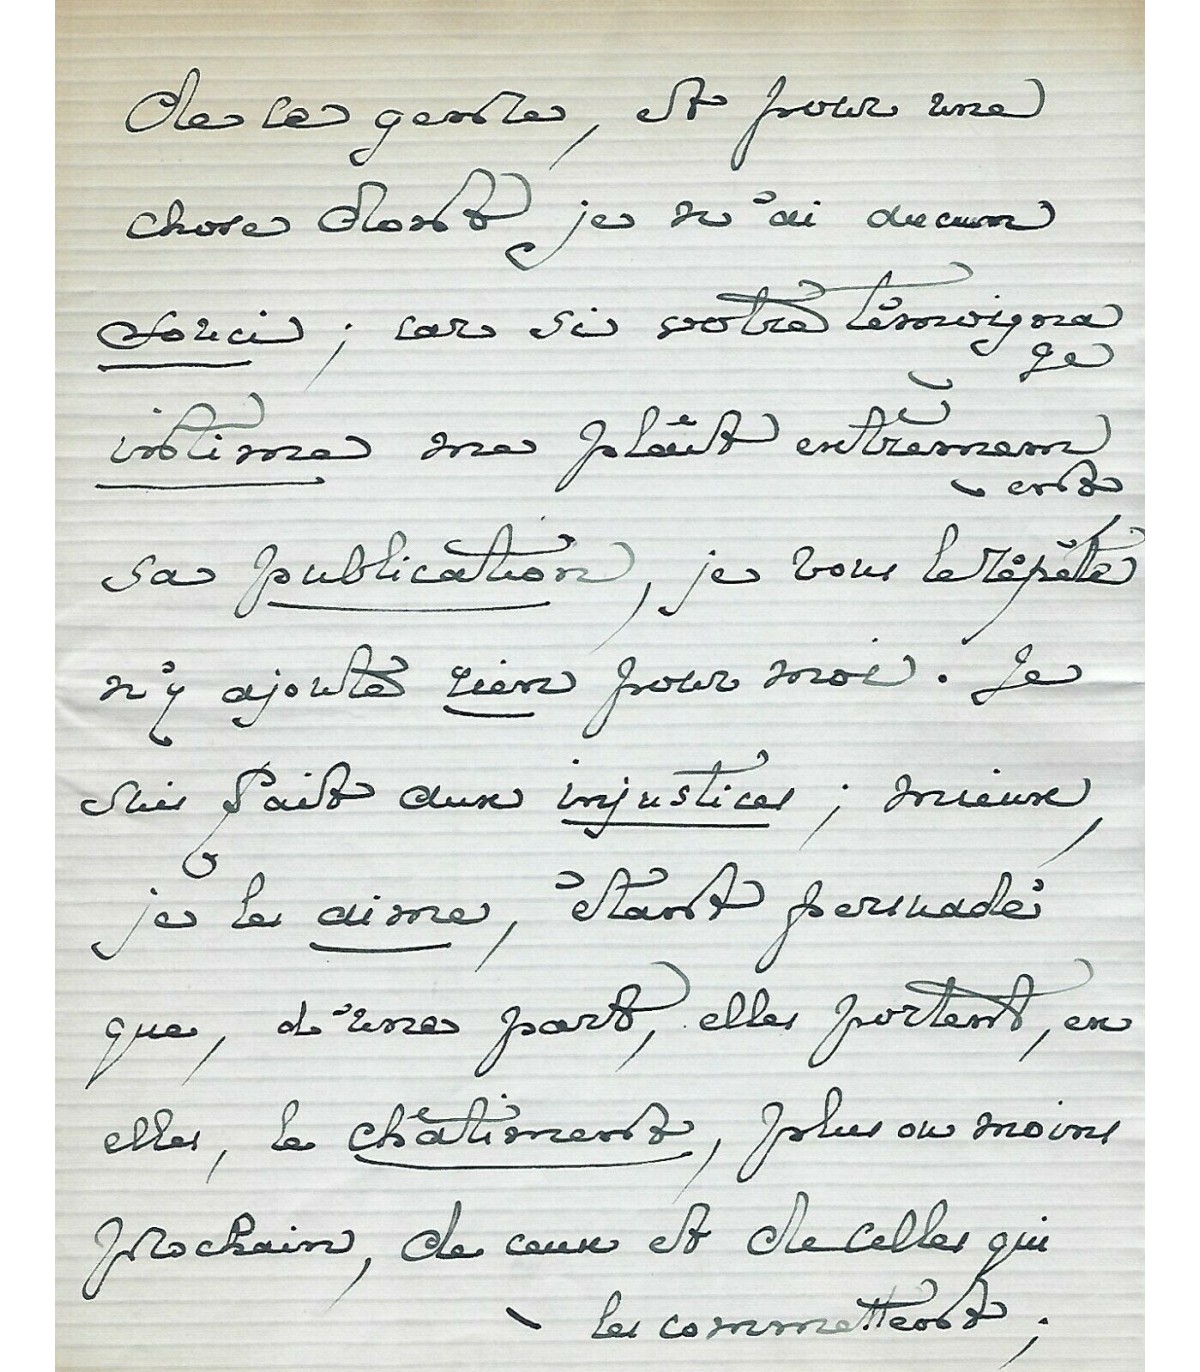 de ce genre, et pour une
chose dont je n'ai aucun
souci ; car si votre témoigna
ge
intime me plaît extrêmem
ent
sa publication, je vous le répète
n'y ajoute rien pour moi. Je
suis fait aux injustices ; mieux,
je les aime, étant persuadé
que, d'une part, elles portent, en
elles, le châtiment, plus ou moins
prochain, de ceux et de celles qui
les commettent ;